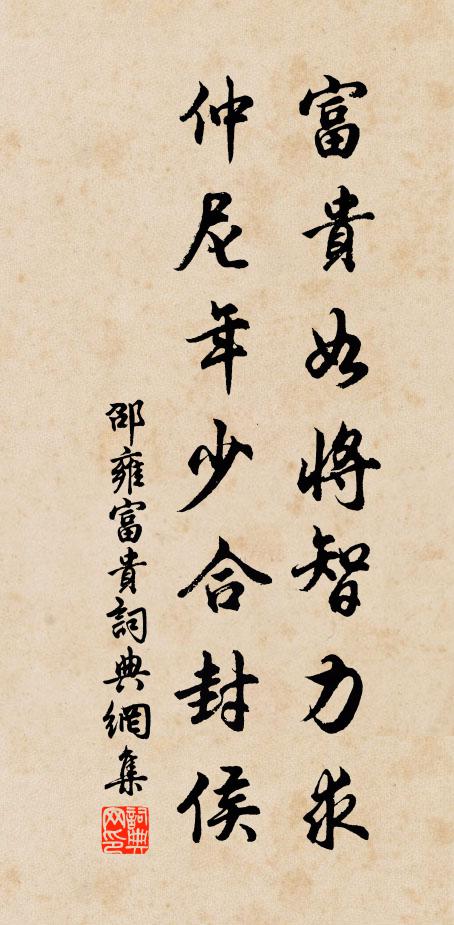 富貴如將智力求
仲尼年少合封侯
邵雍富貴詞典網集
詞典網印